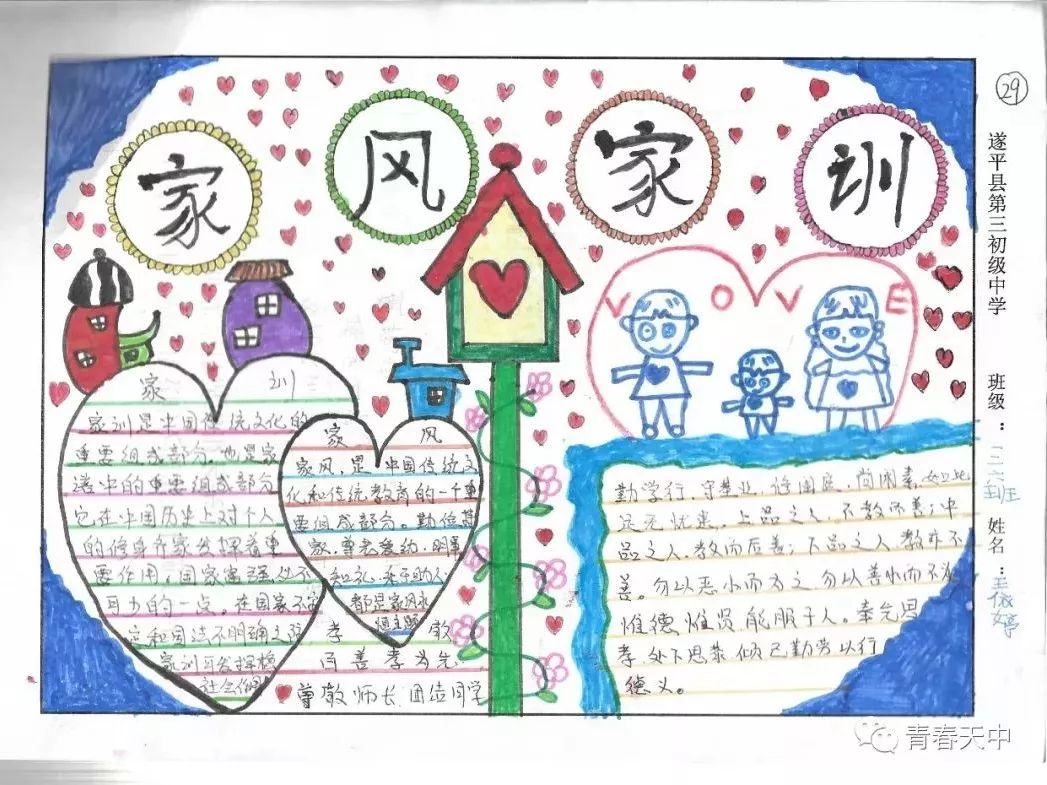 家风家训
29
遂平县第三初级中学 班级: 姓名:
VOVE
家 训
家训是中国传统文化的
重要组成部分,也是家
谱中的重要组成部分
它在中国历史上对个人
的修身齐家发挥着重
要作用,国家富强
可少的一点。在国家不
和国法不明确之
家训
社会
家 风
家风,是中国传统文
化和传统教育的一个重
要组成部分。勤俭
家、尊老爱幼、明
知礼、乐于助人
都是家风永
恒主题
孝 敬
百善孝为先
尊敬师长 团结同学
勤学行,守基业,修闺庭,尚闲素,如此
足无忧患,上品之人,不教而善;中
品之人,教而后善;下品之人,教亦不
善。勿以恶小而为之,勿以善小而不为
惟德惟贤能服于人。奉先思
孝,处下思恭,倾己勤劳以行
德义。
青春天中